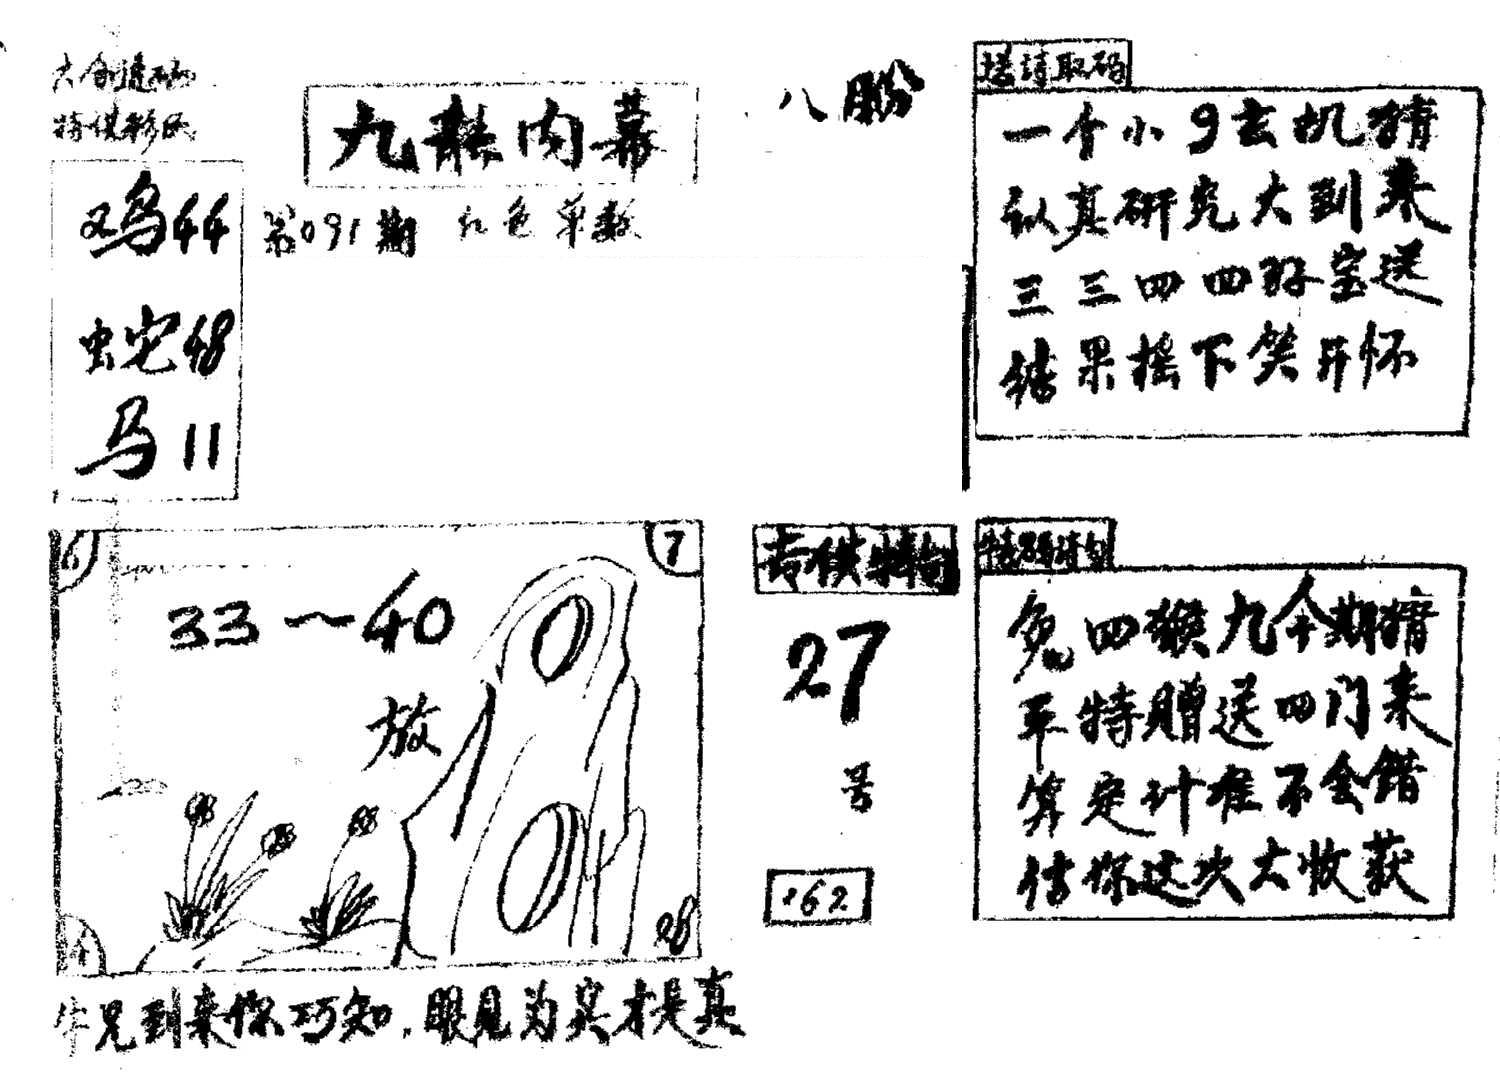 六合送码
特供彩民
鸡44
蛇48
马11
九龙内幕
第091期 红色单数
八腳
送诗取码
一个小9玄机猜
认真研究大到来
三三四四好宝送
结果摇下笑开怀
6
7
33～40
放
28
牛兄到来你巧知，眼见为实才是真
专供特句
27
号
162
特码诗句
兔四猴九今期猜
平特赠送四门来
算定计准不会错
估你这次大收获